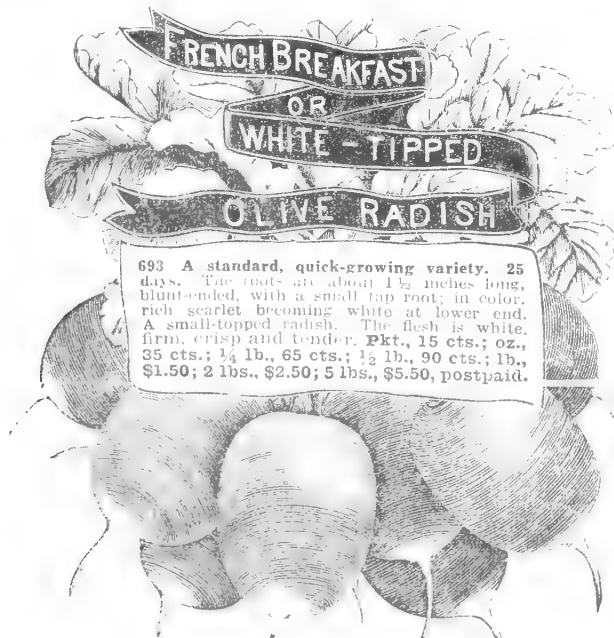 FRENCH BREAKFAST
OR
WHITE-TIPPED
OLIVE RADISH
693 A standard, quick-growing variety. 25
days. The roots are about 1½ inches long,
blunt-ended, with a small tap root; in color,
rich scarlet becoming white at lower end.
A small-topped radish. The flesh is white,
firm, crisp and tender. Pkt., 15 cts.; oz.,
35 cts.; ¼ lb., 65 cts.; ½ lb., 90 cts.; lb.,
$1.50; 2 lbs., $2.50; 5 lbs., $5.50, postpaid.